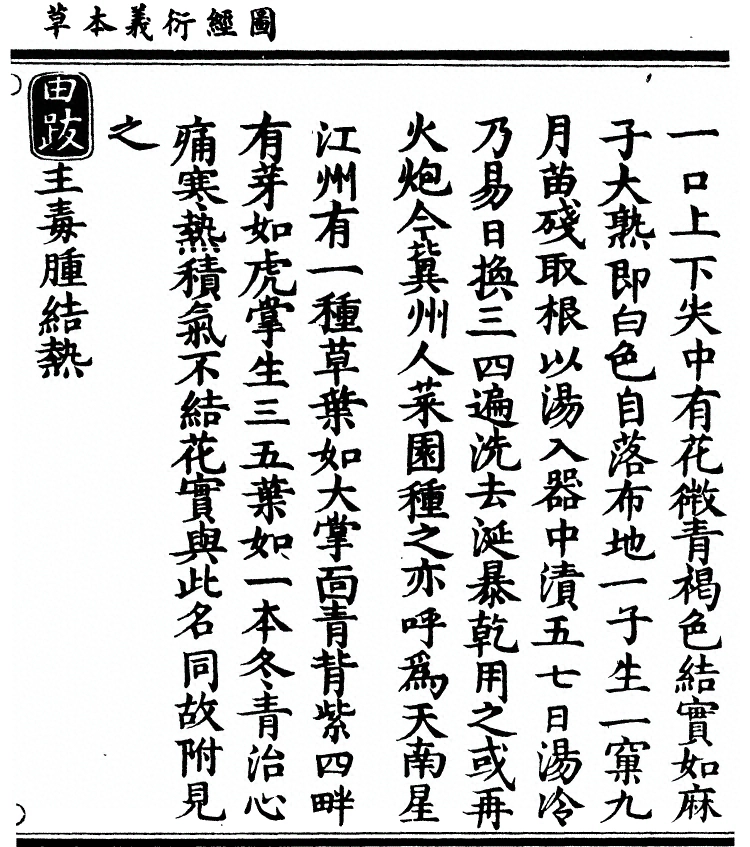 圖經衍義本草
一口上下尖中有花微青褐色結實如麻
子大熟即白色自落布地一子生一窠九
月苗殘取根以湯入器中漬五七日湯冷
乃易日換三四遍洗去涎暴乾用之或再
火炮今冀州人菜園種之亦呼爲天南星
江州有一種草葉如大掌面青背紫四畔
有芽如虎掌生三五葉如一本冬青治心
痛寒熱積氣不結花實與此名同故附見
之
由跋主毒腫結熱